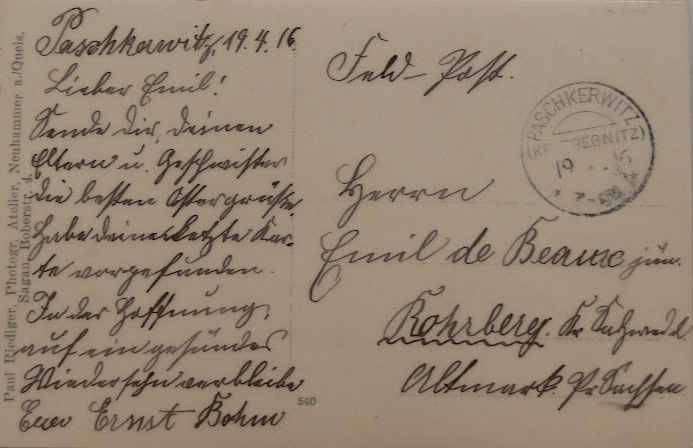 Paschkerwitz, 19.4.16.
Lieber Emil!
Sende dir, deinen
Eltern u. Geschwister
die besten Ostergrüße.
Habe deine letzte Kar-
te vorgefunden.
In der Hoffnung,
auf ein gesundes
Wiedersehn verbleibe
Euer Ernst Bohm
Feld-Post.
Herrn
Emil de Beaux jun.
Rohrberg. Kr Salzwedel
Altmark. Pr Sachsen
PASCHKERWITZ
(KR. TREBNITZ)
19 16
7-
540
Paul Riediger, Photogr. Atelier, Neuhammer a./Queis,
Sagan, Boberstr.